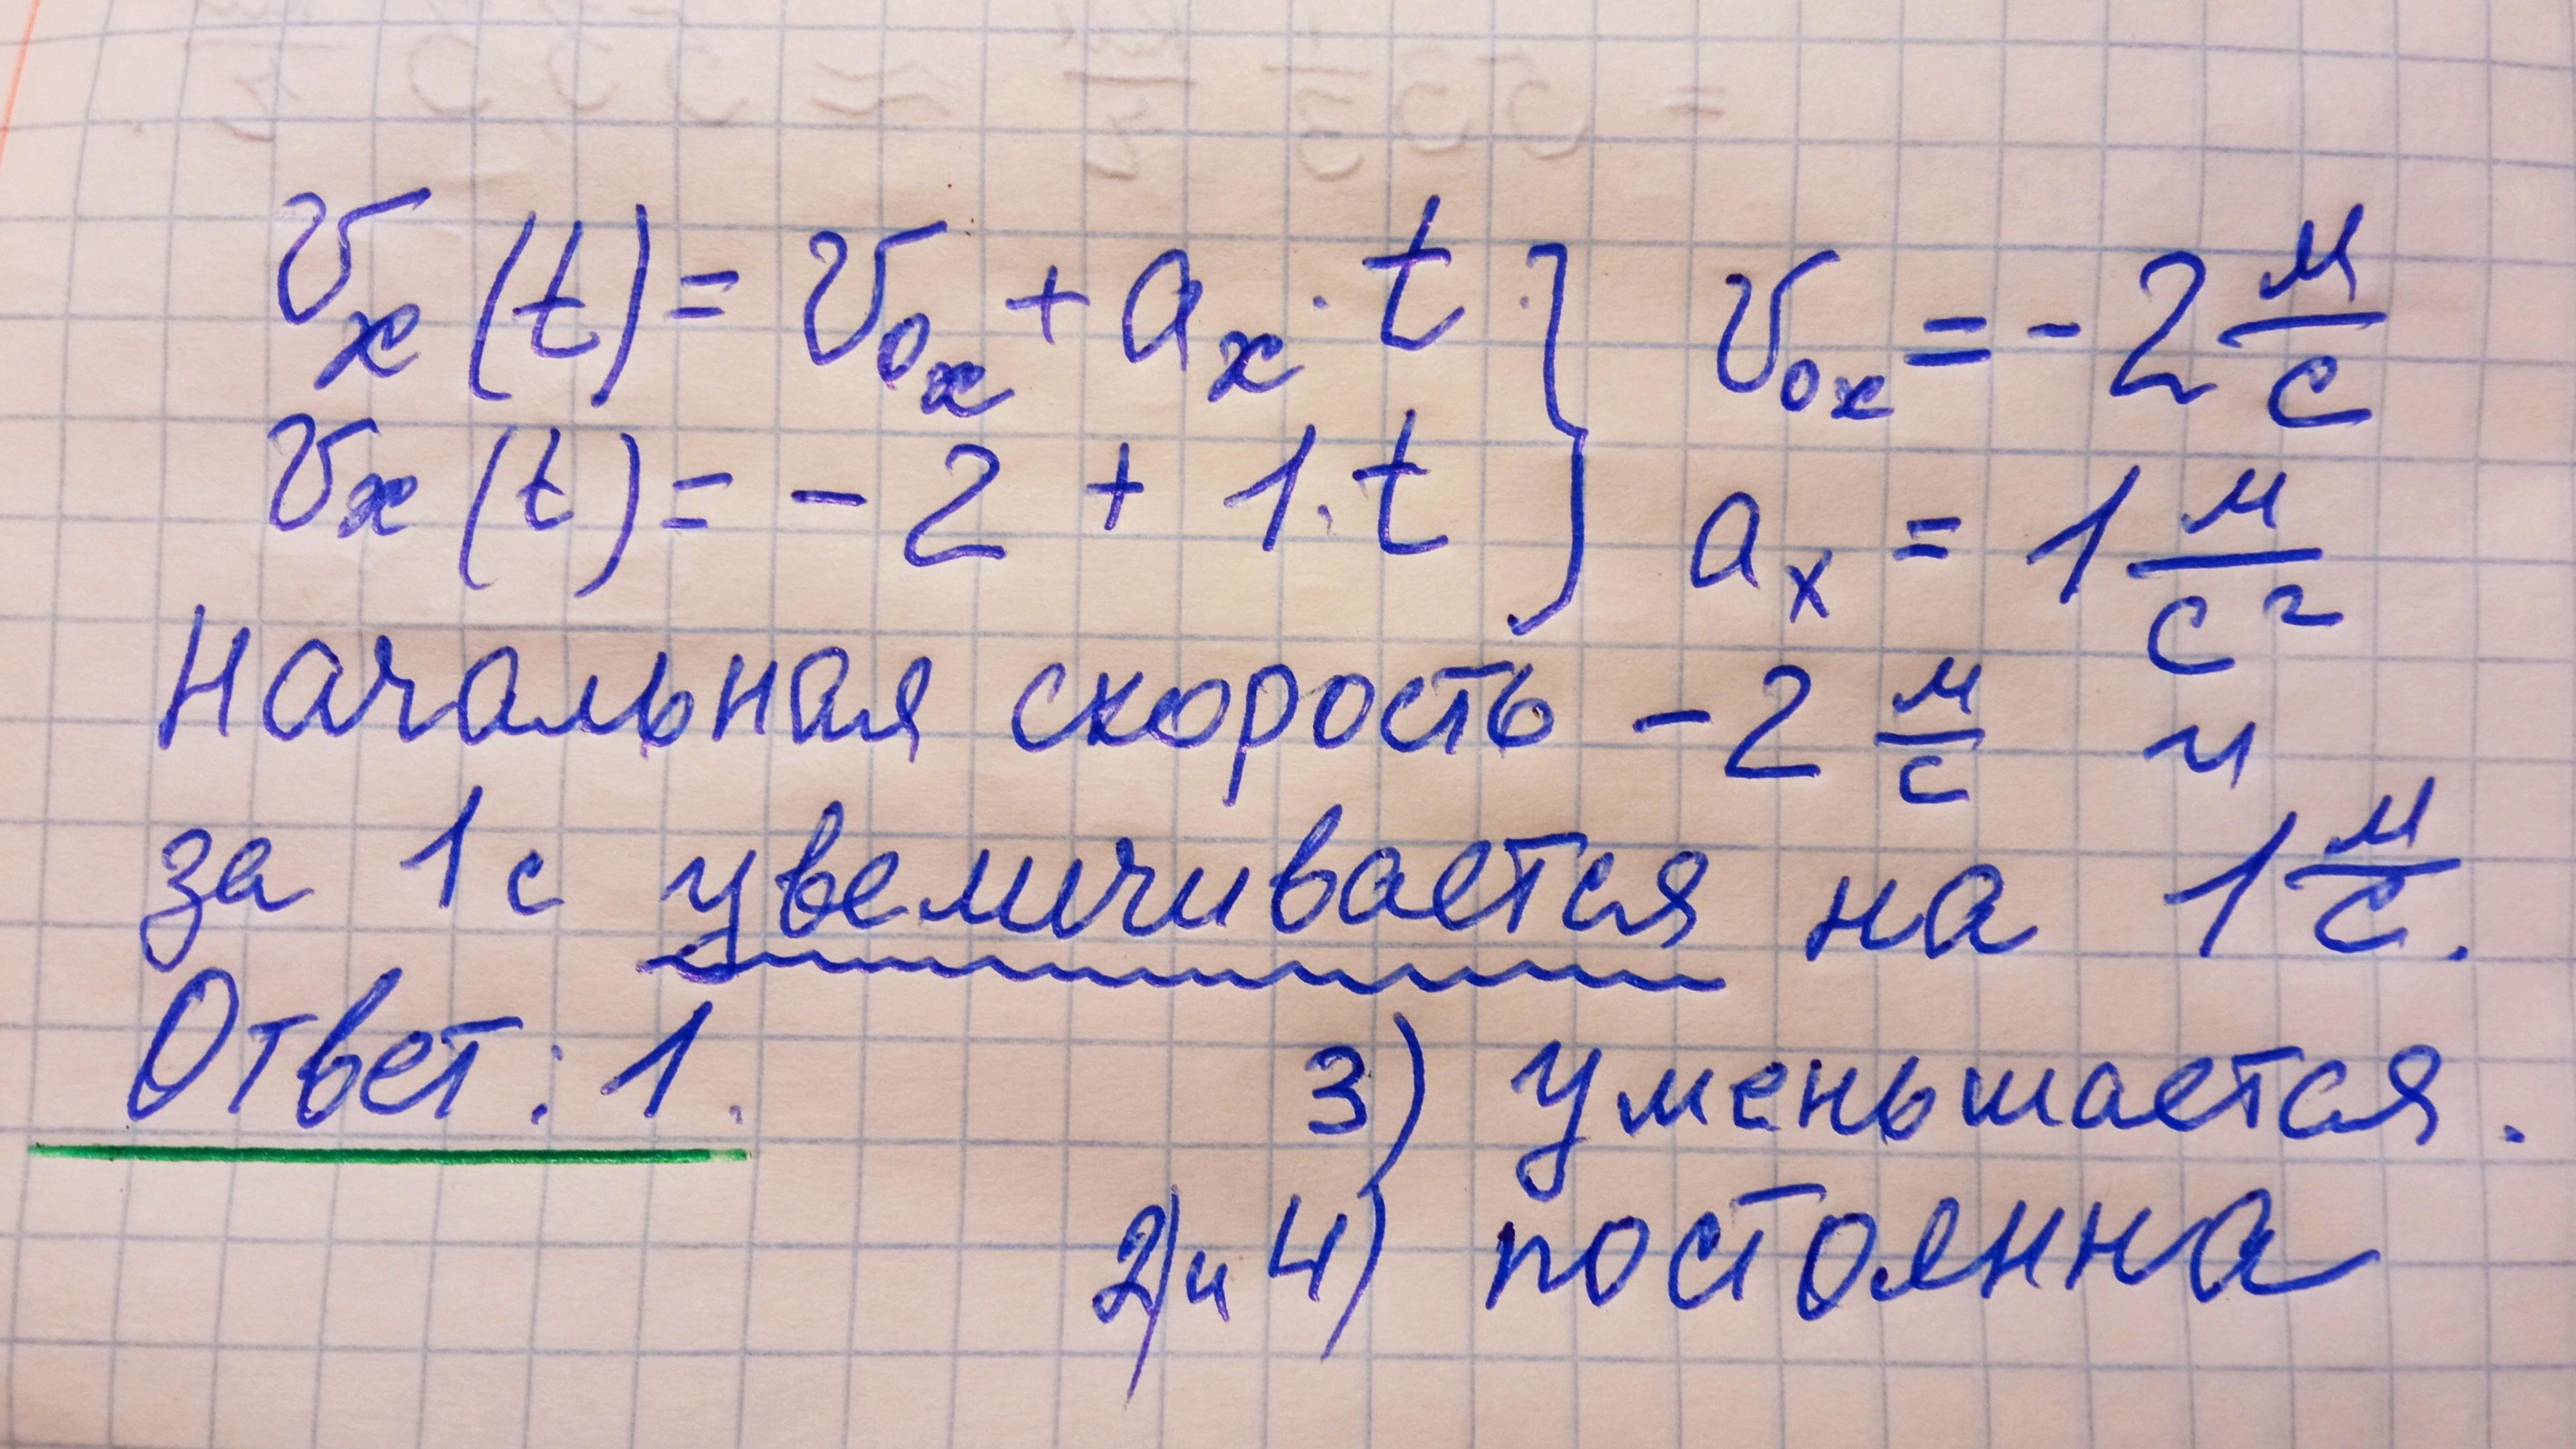 v_x(t) = v_0x + a_x · t } v_0x = -2 м/с
v_x(t) = -2 + 1·t } a_x = 1 м/с²
Начальная скорость -2 м/с и
за 1с увеличивается на 1 м/с.
Ответ: 1.
3) уменьшается.
2) и 4) постоянна